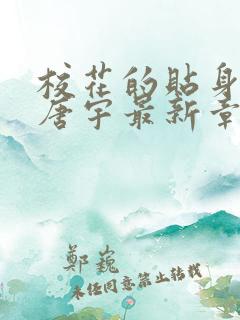 校花的贴身
唐宇最新章
郑巍
未经同意禁止转载